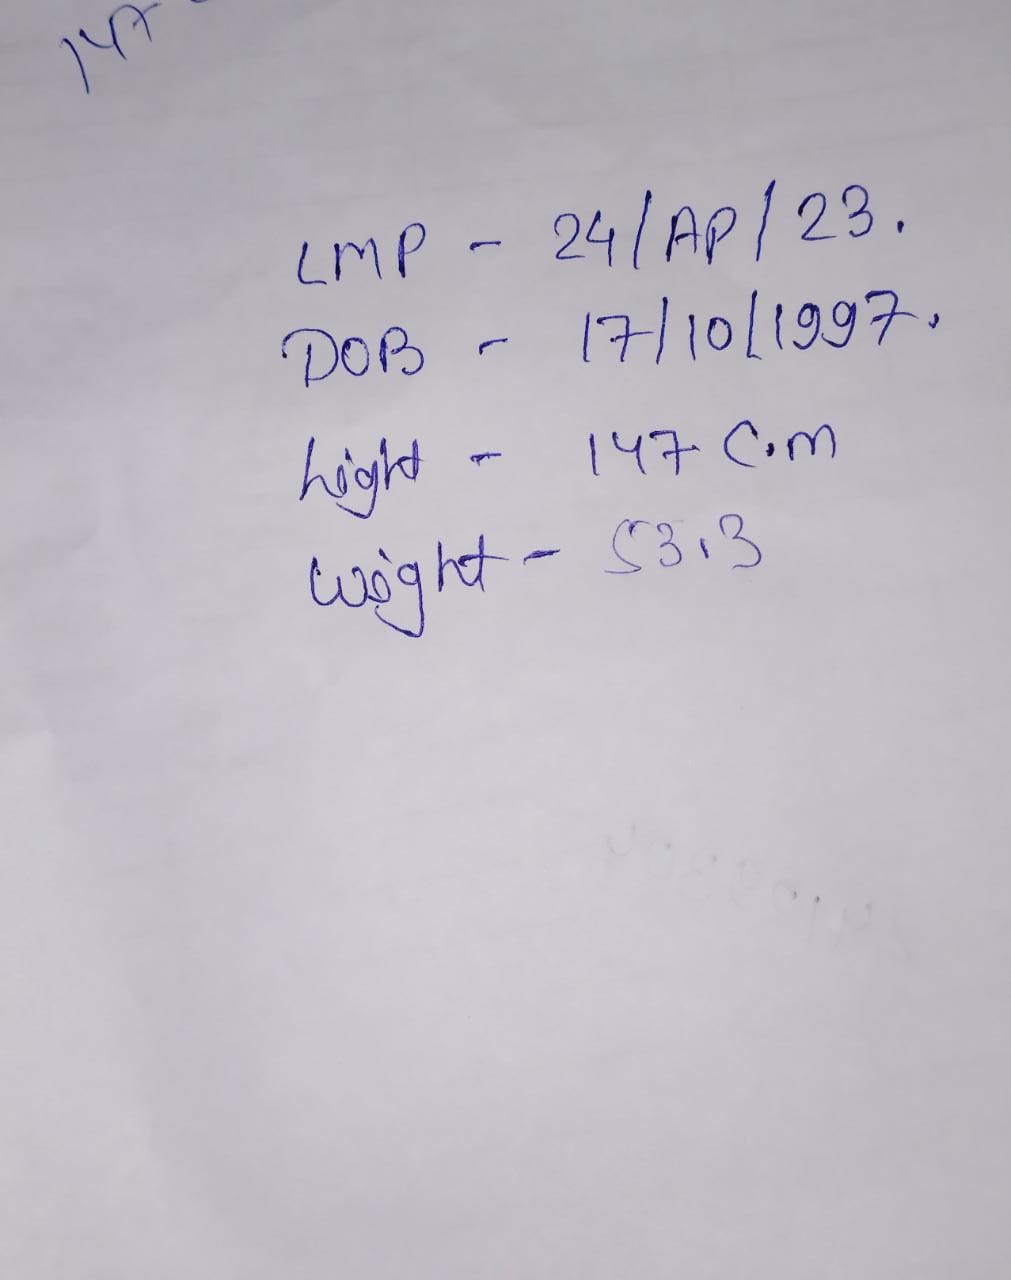 147
LMP - 24/AP/23.
DOB - 17/10/1997.
hight - 147 C.m
weight - 53.3